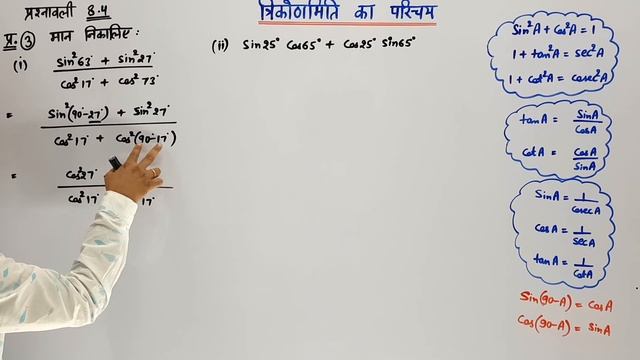 प्रश्नावली 8.4
त्रिकोणमिति का परिचय
प्र. ③ मान निकालिए :
(i) Sin²63° + Sin²27° / Cos²17° + Cos²73°
= Sin²(90°-27°) + Sin²27° / Cos²17° + Cos²(90°-17°)
= Cos²27° / Cos²17° 17°
(ii) Sin25° Cos65° + Cos25° Sin65°
Sin²A + Cos²A = 1
1 + tan²A = sec²A
1 + Cot²A = Cosec²A
tanA = SinA / CosA
CotA = CosA / SinA
SinA = 1 / CosecA
CosA = 1 / SecA
tanA = 1 / CotA
Sin(90-A) = CosA
Cos(90-A) = SinA